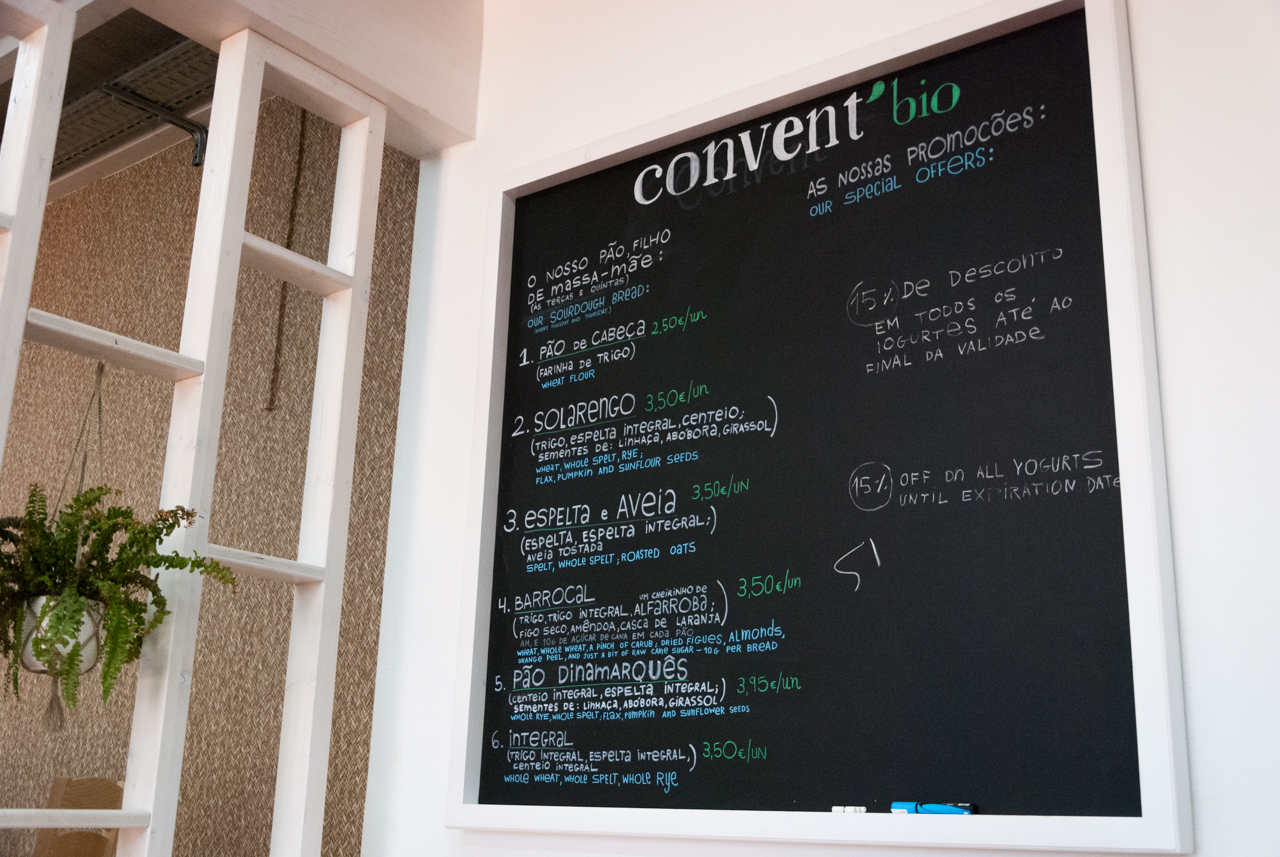 convent'bio
O NOSSO PÃO, FILHO
DE MASSA-MÃE:
(ÀS TERÇAS E QUINTAS)
OUR SOURDOUGH BREAD:
(EVERY TUESDAY AND THURSDAY)
1. PÃO DE CABEÇA 2,50€/UN
(FARINHA DE TRIGO)
WHEAT FLOUR
2. SOLARENGO 3,50€/UN
(TRIGO, ESPELTA INTEGRAL, CENTEIO;
SEMENTES DE: LINHAÇA, ABÓBORA, GIRASSOL)
WHEAT, WHOLE SPELT, RYE;
FLAX, PUMPKIN AND SUNFLOUR SEEDS
3. ESPELTA E AVEIA 3,50€/UN
(ESPELTA, ESPELTA INTEGRAL;)
AVEIA TOSTADA
SPELT, WHOLE SPELT; ROASTED OATS
4. BARROCAL 3,50€/UN
UM CHEIRINHO DE
(TRIGO, TRIGO INTEGRAL, ALFARROBA;
FIGO SECO, AMÊNDOA, CASCA DE LARANJA)
AH, E 10G DE AÇÚCAR DE CANA EM CADA PÃO
WHEAT, WHOLE WHEAT, A PINCH OF CARUB; DRIED FIGUES, ALMONDS,
ORANGE PEEL, AND JUST A BIT OF RAW CANE SUGAR - 10G PER BREAD
5. PÃO DINAMARQUÊS
(CENTEIO INTEGRAL, ESPELTA INTEGRAL;) 3,95€/UN
SEMENTES DE: LINHAÇA, ABÓBORA, GIRASSOL
WHOLE RYE, WHOLE SPELT; FLAX, PUMPKIN AND SUNFLOWER SEEDS
6. INTEGRAL
(TRIGO INTEGRAL, ESPELTA INTEGRAL,) 3,50€/UN
CENTEIO INTEGRAL
WHOLE WHEAT, WHOLE SPELT, WHOLE RYE
AS NOSSAS PROMOCÕES:
OUR SPECIAL OFFERS:
15% DE DESCONTO
EM TODOS OS
IOGURTES ATÉ AO
FINAL DA VALIDADE
15% OFF ON ALL YOGURTS
UNTIL EXPIRATION DATE